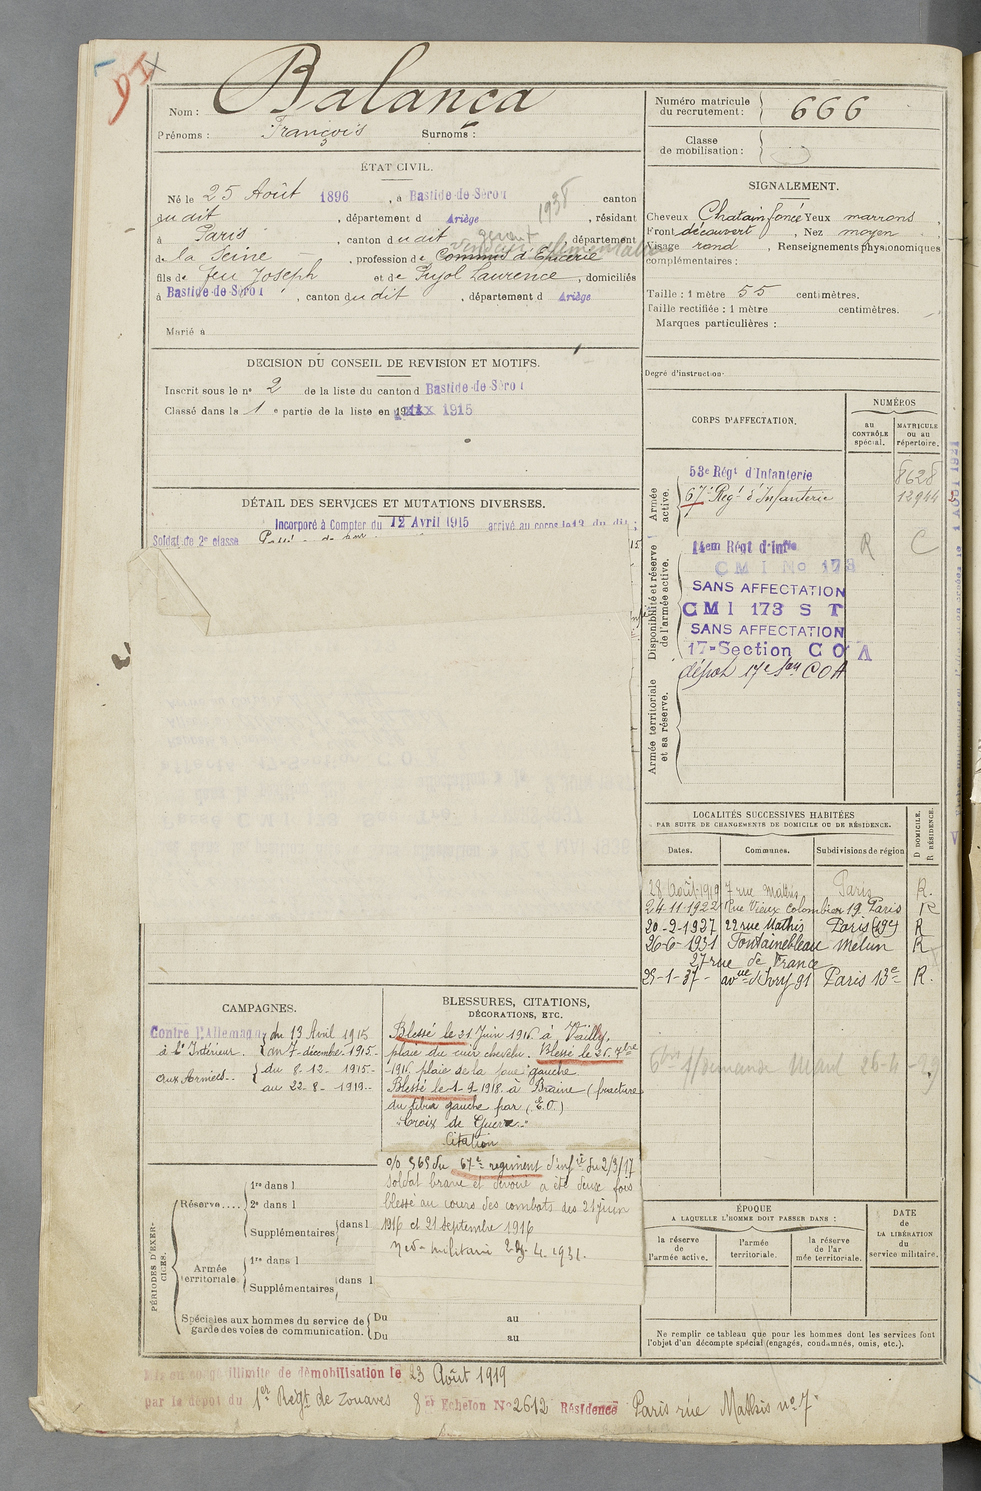 Nom : Balança
Prénoms : François Surnoms :
ÉTAT CIVIL.
Né le 25 Août 1896, à Bastide-de-Sérou canton
dudit, département d Ariège, résidant
à Paris, canton dudit, département
1938
gérant
de la Seine, profession de Commis d'Epicerie
fils de feu Joseph et de Pujol Laurence, domiciliés
à Bastide-de-Sérou, canton dudit, département d Ariège
Marié à
DÉCISION DU CONSEIL DE REVISION ET MOTIFS.
Inscrit sous le n° 2 de la liste du canton d Bastide-de-Sérou
Classé dans la 1e partie de la liste en 1915
DÉTAIL DES SERVICES ET MUTATIONS DIVERSES.
Incorporé à Compter du 12 Avril 1915 arrivé au corps le 13 du dit
Soldat de 2e classe
CAMPAGNES.
Contre l'Allemagne
à l'Intérieur. du 13 Avril 1915
au 7 décembre 1915
aux Armées du 8-12-1915
au 22-8-1919
BLESSURES, CITATIONS,
DÉCORATIONS, ETC.
Blessé le 21 Juin 1916 à Vailly,
plaie du cuir chevelu. Blessé le 26 7bre
1916 plaie de la joue gauche
Blessé le 1-9-1918 à Braine (fracture
du tibia gauche par (E.O.)
Croix de Guerre
Citation
o/o 569 du 67e regiment d'infie du 2/3/17
Soldat brave et dévoué a été deux fois
blessé au cours des combats des 21 juin
1916 et 21 septembre 1916
PÉRIODES D'EXERCICES.
Réserve....
1re dans l
2e dans l
Supplémentaires dans l
Armée territoriale
1re dans l
Supplémentaires dans l
Spéciales aux hommes du service de garde des voies de communication.
Du au
Du au
Mis en congé illimité de démobilisation le 23 Août 1919
par le dépôt du 1er Régt de Zouaves 8e Echelon N° 2612 Résidence Paris rue Mathis n° 7
Numéro matricule
du recrutement : 666
Classe
de mobilisation :
SIGNALEMENT.
Cheveux Chatain foncé Yeux marrons
Front découvert, Nez moyen
Visage rond, Renseignements physionomiques
complémentaires :
Taille : 1 mètre 55 centimètres.
Taille rectifiée : 1 mètre centimètres.
Marques particulières :
Degré d'instruction
CORPS D'AFFECTATION.
NUMÉROS
au CONTRÔLE spécial.
MATRICULE ou au répertoire.
Armée active.
53e Régt d'Infanterie 8628
67e Regt d'Infanterie 12944
Disponibilité et réserve de l'armée active.
14em Régt d'Infie R C
C M I No 173
SANS AFFECTATION
CMI 173 S T
SANS AFFECTATION
17e Section C O A
Armée territoriale et sa réserve.
dépôt 17e Son COA
LOCALITÉS SUCCESSIVES HABITÉES
PAR SUITE DE CHANGEMENTS DE DOMICILE OU DE RÉSIDENCE.
Dates. Communes. Subdivisions de région D DOMICILE. R RÉSIDENCE.
28 Août 1919 7 rue Mathis Paris R.
24-11-1922 Rue Vieux Colombier 19 Paris R
20-2-1927 22 rue Mathis Paris (19e) R
26-6-1931 Fontainebleau Melun R
27 rue de France
25-1-37 avue d'Ivry 91 Paris 13e R.
ÉPOQUE
A LAQUELLE L'HOMME DOIT PASSER DANS :
la réserve de l'armée active.
l'armée territoriale.
la réserve de l'armée territoriale.
DATE
de
LA LIBÉRATION
du
service militaire.
Ne remplir ce tableau que pour les hommes dont les services font
l'objet d'un décompte spécial (engagés, condamnés, omis, etc.).